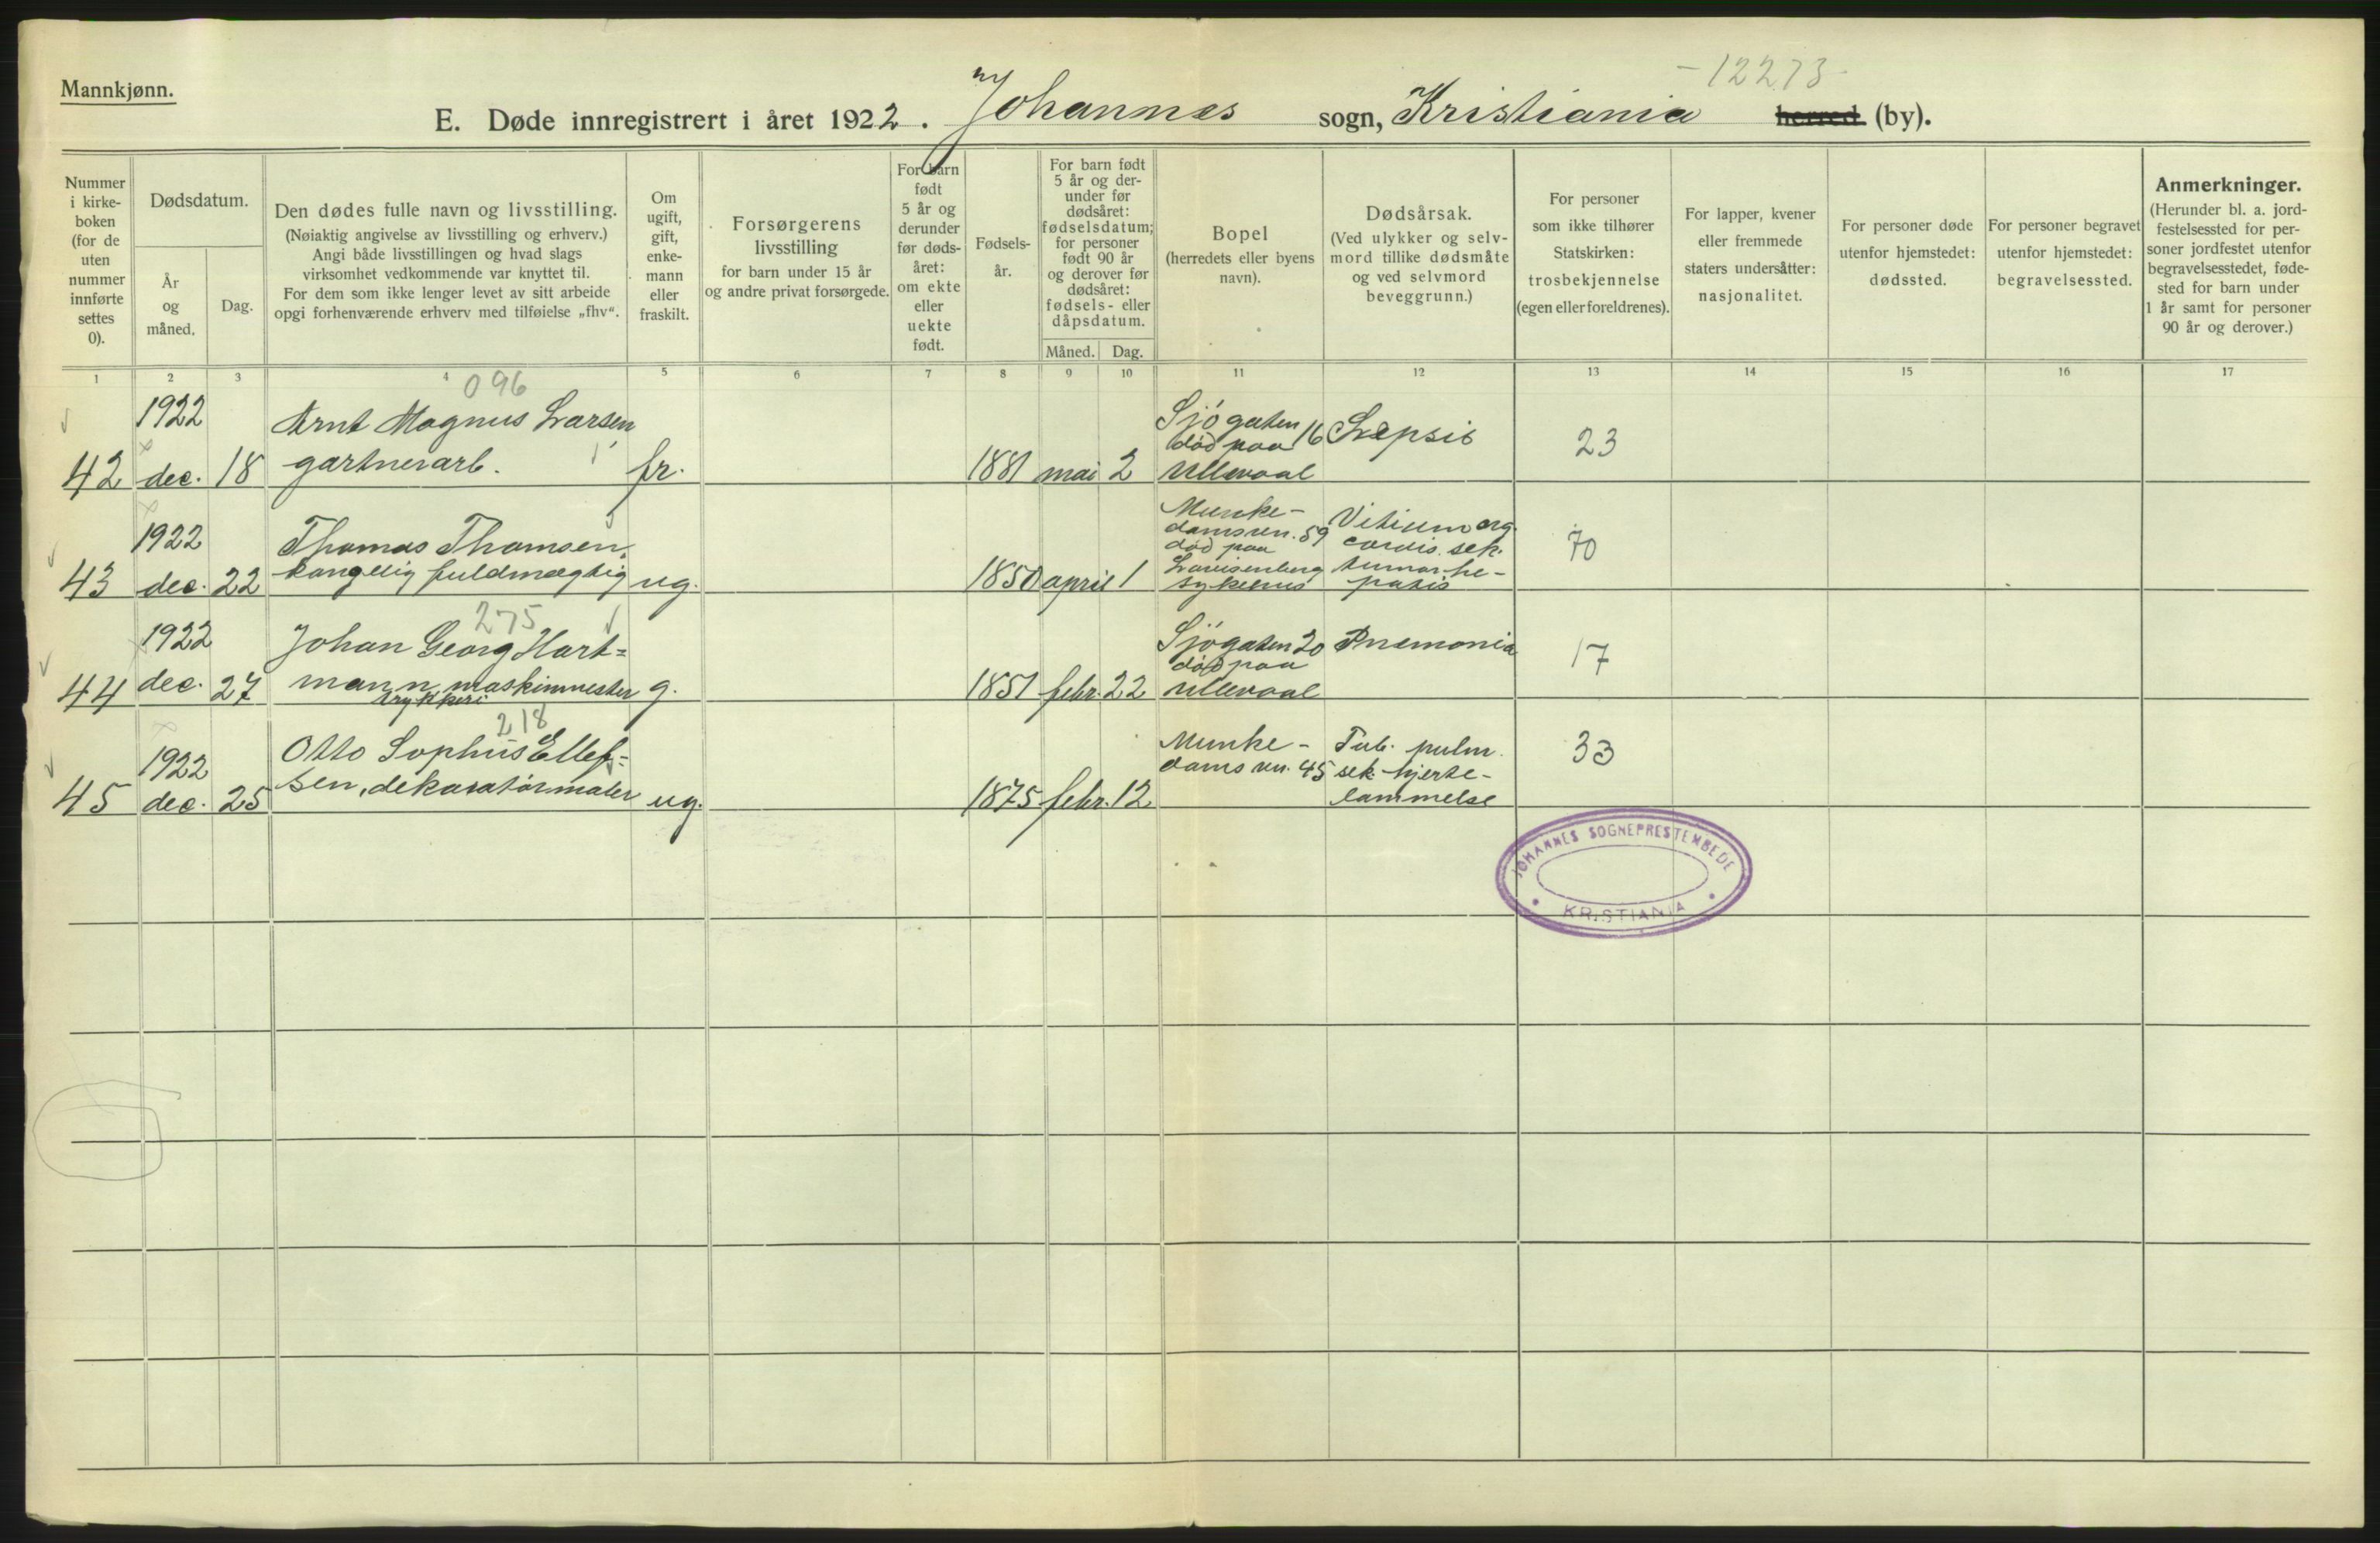 Mannkjønn.
- 12273 -
E. Døde innregistrert i året 1922. Johannes sogn, Kristiania herred (by).
Nummer i kirke- boken (for de uten nummer innførte settes 0).
Dødsdatum.
År og måned.
Dag.
Den dødes fulle navn og livsstilling.
(Nøiaktig angivelse av livsstilling og erhverv.)
Angi både livsstillingen og hvad slags
virksomhet vedkommende var knyttet til.
For dem som ikke lenger levet av sitt arbeide
opgi forhenværende erhverv med tilføielse „fhv“.
Om ugift, gift, enke- mann eller fraskilt.
Forsørgerens
livsstilling
for barn under 15 år
og andre privat forsørgede.
For barn født 5 år og derunder før døds- året: om ekte eller uekte født.
Fødsels- år.
For barn født 5 år og der- under før dødsåret: fødselsdatum; for personer født 90 år og derover før dødsåret: fødsels- eller dåpsdatum.
Måned. Dag.
Bopel
(herredets eller byens
navn).
Dødsårsak.
(Ved ulykker og selv-
mord tillike dødsmåte
og ved selvmord
beveggrunn.)
For personer
som ikke tilhører
Statskirken:
trosbekjennelse
(egen eller foreldrenes).
For lapper, kvener
eller fremmede
staters undersåtter:
nasjonalitet.
For personer døde
utenfor hjemstedet:
dødssted.
For personer begravet
utenfor hjemstedet:
begravelsessted.
Anmerkninger.
(Herunder bl. a. jord-
festelsessted for per-
soner jordfestet utenfor
begravelsesstedet, føde-
sted for barn under
1 år samt for personer
90 år og derover.)
1 2 3 4 5 6 7 8 9 10 11 12 13 14 15 16 17
096
1922 Arnt Magnus Larsen Sjógaten 16 Sepsis 23
død paa
42 dec. 18 gartnerarb. fr. 1881 mai 2 Ullevaal
Munke- Vitium org.
1922 Thomas Thomsen, damsvn. 59 cordis. sek. 70
død paa
kongelig fuldmægtig Lovisenberg tumor he-
43 dec. 22 ug. 1850 april 1 sykehus patis
275
1922 Johan Georg Hart= Sjøgaten 20 Pnemonia 17
død paa
44 dec. 27 mann, maskinmester g. 1851 febr. 22 Ullevaal
trykkeri
218
1922 Otto Sophus Ellef= Munke- Tub. pulm. 33
damsvn. 45 sek. hjerte-
45 dec. 25 sen, dekoratørmaler ug. 1875 febr. 12 lammelse
JOHANNES SOGNEPRESTEMBEDE
KRISTIANIA